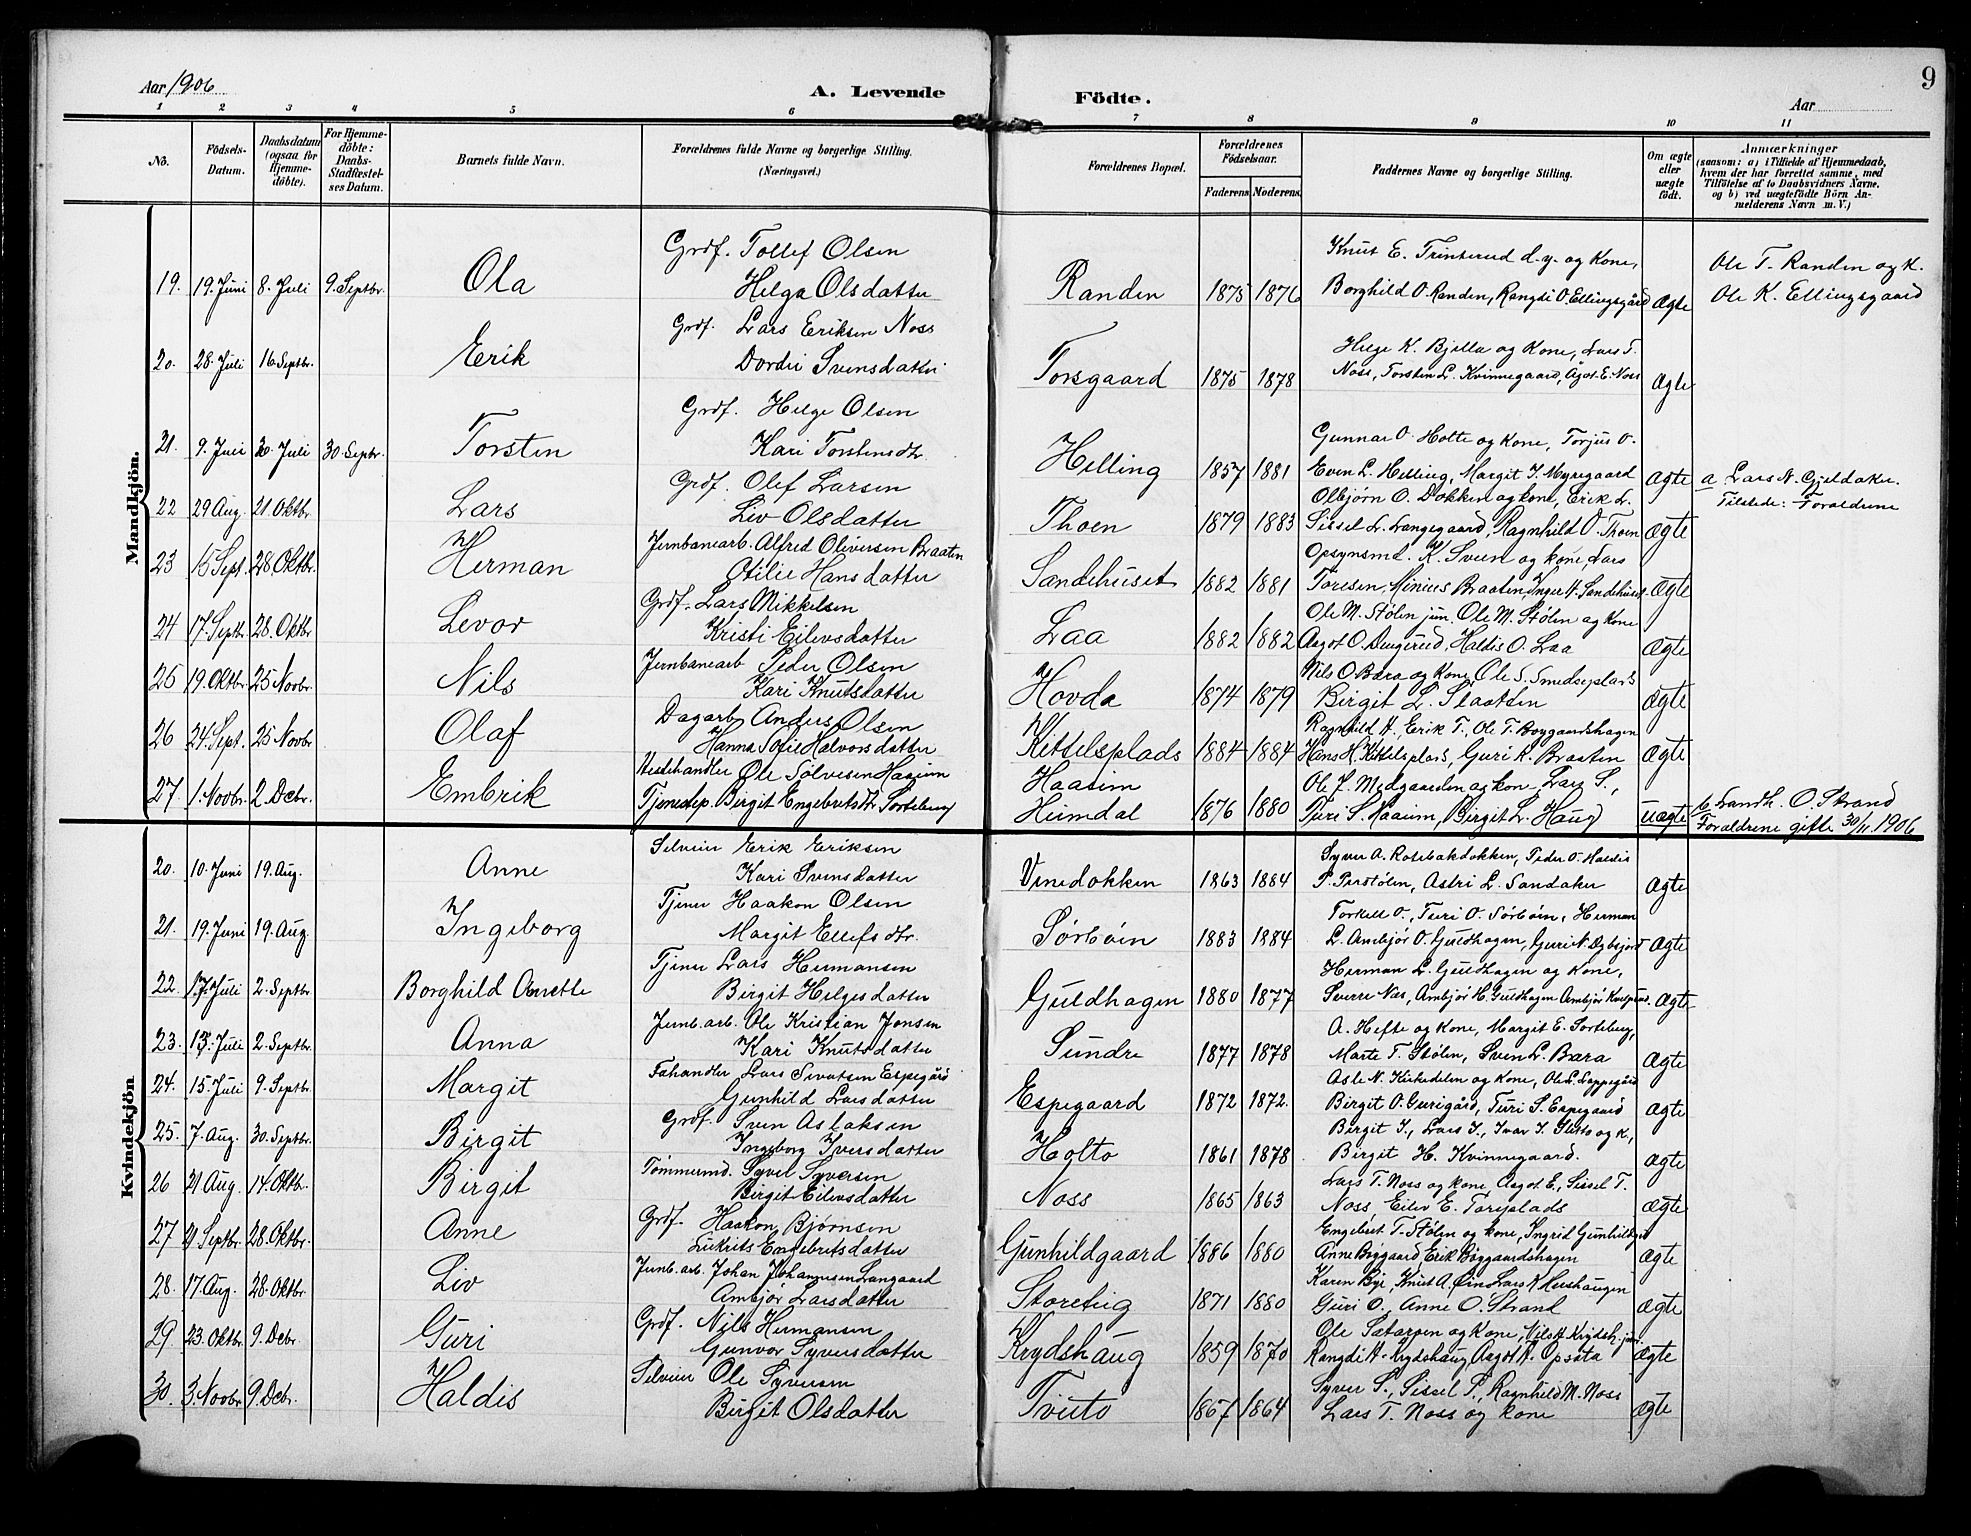 Aar 1906
A. Levende Födte.
Aar
9
1 2 3 4 5 6 7 8 9 10 11
No.
Födsels-Datum.
Daabsdatum (ogsaa for Hjemme-döbte).
For Hjemme-döbte: Daabs-Stadfæstel-ses Datum.
Barnets fulde Navn.
Forældrenes fulde Navne og borgerlige Stilling. (Næringsvei.)
Forældrenes Bopæl.
Forældrenes Födselsaar.
Faderens
Moderens.
Faddernes Navne og borgerlige Stilling.
Om ægte eller uægte födt.
Anmærkninger
(saasom: a) i Tilfælde af Hjemmedaab,
hvem der har forrettet samme, med
Tilföielse af to Daabsvidners Navne,
og b) ved uægtefödte Börn An-
melderens Navn m. V.)
Mandkjön.
19. 19. Juni 8. Juli 9. Septbr. Ola Grdf. Tollef Olsen
Helga Olsdatter Randen 1875 1876 Knut E. Trinterud d.y. og Kone,
Borghild O. Randen, Rangdi O. Ellingsgård Ægte Ole T. Randen og K.
Ole K. Ellingsgaard
20. 28. Juli 16. Septbr. Erik Grdf. Lars Eriksen Noss
Dordei Svensdatter Torsgaard 1875 1878 Helge K. Bjella og Kone, Lars T.
Noss, Torsten L. Kvinnegaard, Agot E. Noss Ægte
21. 9. Juli 20 Juli 30 Septbr. Torsten Grdf. Helge Olsen
Kari Torstensdtr. Helling 1857 1881 Gunnar O. Holte og Kone, Torjus O.
Even L. Helling, Margit T. Myrgaard Ægte a Lars N. Gjeldaker.
Tilstede: Forældrene
22 29 Aug. 21. Oktbr. Lars Grdf. Olef Larsen
Liv Olsdatter Thoen 1879 1883 Olbjørn O. Dokken og kone, Erik L.
Sissel L. Langegaard, Ragnhild O. Thoen Ægte
23 15 Sept. 28 Oktbr. Herman Jernbanearb. Alfred Oliversen Braaten
Otilie Hansdatter Sandehuset 1882 1881 Opsynsmd. K. Sveen og kone, Lars
Toresen, Minius Braaten, Inger H. Sandehuset Ægte
24 17. Septbr. 28. Oktbr Levor Grdf. Lars Mikkelsen
Kristi Eilevsdatter Laa 1882 1882 Ole M. Stølen jun., Ole M. Stølen og kone
Aagot O. Dengerud, Haldis O. Laa Ægte
25 19. Oktbr. 25 Novbr. Nils Jernbanearb Peder Olsen
Kari Knutsdatter Hovda 1874 1879 Nils O. Bæra og Kone, Ole S. Smedseplads
Birgit L. Slaatten Ægte
26 24. Sept. 25 Novbr Olaf Dagarb. Anders Olsen
Hanna Sofie Halvorsdatter Kittelsplads 1884 1884 Ragnhild H., Erik T., Ole T. Böygaardshagen
Hans H. Kittelsplads, Guri K. Braaten Ægte
27 1. Novbr. 2. Debr. Embrik Hestehandler Ole Sølvesen Haaium
Tjenestep. Birgit Engebretsdtr. Sorteberg Haasim
Heimdal 1876 1880 Ole J. Medgaarden og kone, Lars S.,
Turi S. Haaium, Birgit L. Haug uægte b Landh. O. Strand
Forældrene gifte 30/11. 1906
Kvindekjön
20. 10. Juni 19. Aug. Anne Selveier Erik Eriksen
Kari Svensdatter Vinedokken 1863 1884 Syver A. Rotebakdokken, Peder O. Haldis
P. Perstølen, Astri L. Sandaker Ægte
21. 19. Juni 19. Aug. Ingeborg Tjener Haakon Olsen
Margit Ellefsdtr. Sørbøin 1883 1884 Torkell O., Turi O. Sørbøin, Herman
L. Ambjør O. Guldhagen, Guri N. Ægte
22. 17. Juli 2. Septbr Borghild Annette Tjener Lars Hermansen
Birgit Helgesdatter Guldhagen 1880 1877 Herman L. Guldhagen og Kone,
Sverre Næs, Ambjør H. Guldhagen Ambjør Ægte
23. 13. Juli 2. Septbr. Anna Jernb. arb. Ole Kristian Jonsen
Kari Knutsdatter Sundre 1877 1878 A. Hefte og Kone, Margit E. Sorteberg,
Marte T. Stølen, Sven L. Bæra Ægte
24. 15. Juli 9. Septbr. Margit Fæhandler Lars Sivatsen Espegård
Gunhild Larsdatter Espegaard 1872 1872. Asle N. Kirkedelen og Kone, Ole L. Loppegård
Birgit O. Gurigård, Turi S. Espegaard Ægte
25. 7. Aug. 30. Septbr. Birgit Grdf. Sven Aslaksen
Ingeborg Iversdatter Holto 1861 1878 Birgit I., Lars I., Ivar I. Sletto og K,
Birgit H. Kvinnegaard. Ægte
26 21 Aug. 14. Oktbr. Birgit Tømmermd. Syvel Syversen
Birgit Eilevsdatter Noss 1865 1863 Lars T. Noss og kone Aagot E., Sissel T.
Noss, Eilev E. Torsplads Ægte
27 21 Septbr. 28. Oktbr. Anne Grdf. Haakon Bjørnsen
Engebretsdatter Gunhildgaard 1886 1880 Engebret T. Stølen og kone, Ingrid Gunhildgrd
Anne Böygaard, Erik Böygaardshagen Ægte
28. 17. Aug. 28. Oktbr. Liv Jernb. arb. Johan Johannesen Langaard
Ambjør Larsdatter Storeteig 1871 1880 Karen Bye, Knut A. Øin, Lars K. Hershaugen
Guri O., Anne O. Strand Ægte
29 23. Oktbr. 9. Debr. Guri Grdf. Nils Hermansen
Gunvor Syversdatter Krydshaug 1859 1870 Ole Sætaroen og Kone, Nils H. Krydsh. jun.
Rangdi H. Krydshaug, Aagot H. Opsata Ægte
30. 3. Novbr. 9. Debr. Haldis Selveier Ole Syversen
Birgit Olsdatter Tveito 1867 1864 Syver S., Sissel P., Ragnhild M. Noss
Lars T. Noss og kone Ægte